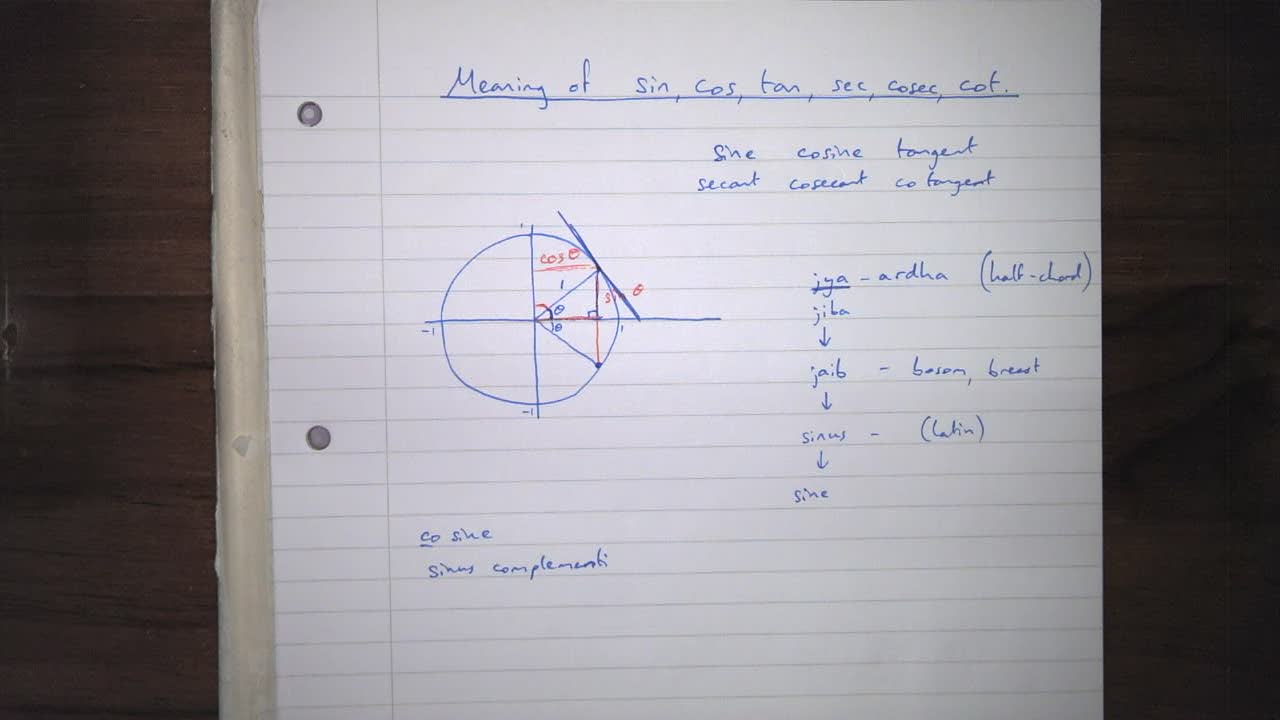 Meaning of sin, cos, tan, sec, cosec, cot.
sine cosine tangent
secant cosecant cotangent
1
cos θ
1
θ
θ
s θ
-1
1
-1
jya - ardha (half-chord)
jiba
↓
jaib - bosom, breast
↓
sinus - (latin)
↓
sine
cosine
sinus complementi